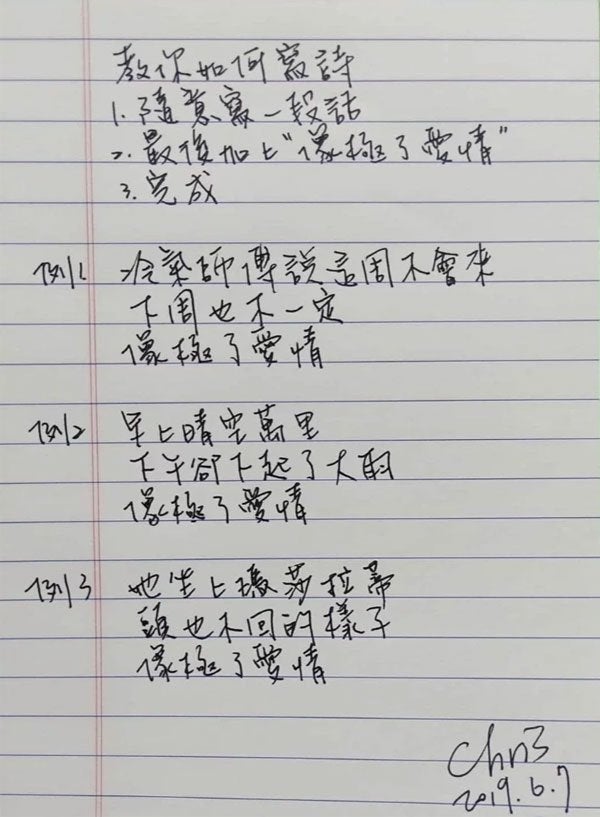 教你如何寫詩
1. 隨意寫一段話
2. 最後加上“像極了愛情”
3. 完成
例1 冷氣師傅說這周不會來
下周也不一定
像極了愛情
例2 早上晴空萬里
下午卻下起了大雨
像極了愛情
例3 她坐上瑪莎拉蒂
頭也不回的樣子
像極了愛情
2019.6.7